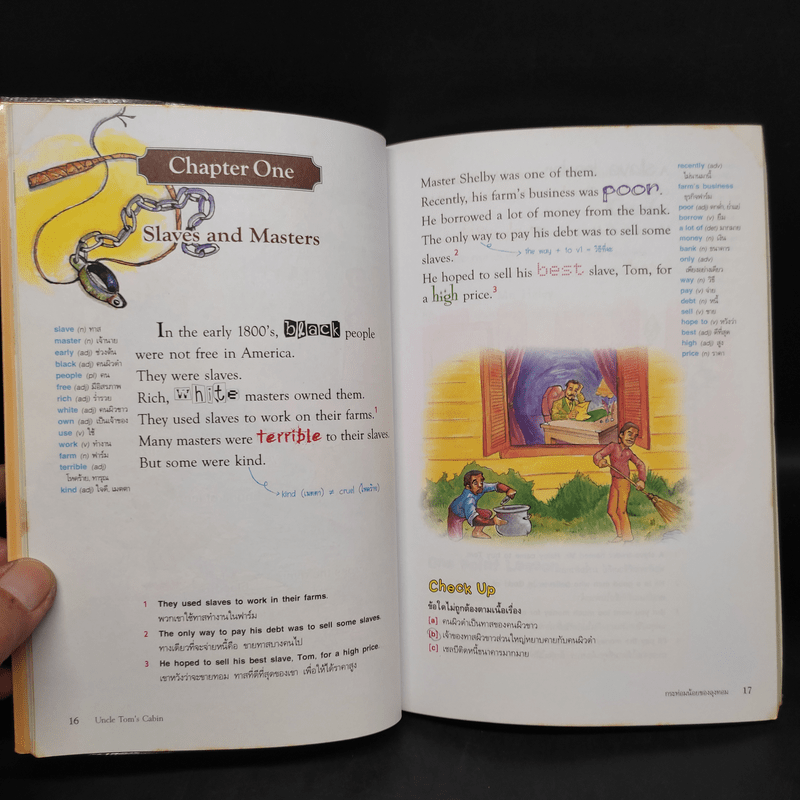 Chapter One
Slaves and Masters
slave (n) ทาส
master (n) เจ้านาย
early (adj) ช่วงต้น
black (adj) คนผิวดำ
people (pl) คน
free (adj) มีอิสรภาพ
rich (adj) ร่ำรวย
white (adj) คนผิวขาว
own (adj) เป็นเจ้าของ
use (v) ใช้
work (v) ทำงาน
farm (n) ฟาร์ม
terrible (adj)
โหดร้าย, ทารุณ
kind (adj) ใจดี, เมตตา
In the early 1800's, black people
were not free in America.
They were slaves.
Rich, white masters owned them.
They used slaves to work on their farms.1
Many masters were terrible to their slaves.
But some were kind.
kind (เมตตา) ≠ cruel (โหดร้าย)
1 They used slaves to work in their farms.
พวกเขาใช้ทาสทำงานในฟาร์ม
2 The only way to pay his debt was to sell some slaves.
ทางเดียวที่จะจ่ายหนี้คือ ขายทาสบางคนไป
3 He hoped to sell his best slave, Tom, for a high price.
เขาหวังว่าจะขายทอม ทาสที่ดีที่สุดของเขา เพื่อให้ได้ราคาสูง
16 Uncle Tom's Cabin
Master Shelby was one of them.
Recently, his farm's business was poor.
He borrowed a lot of money from the bank.
The only way to pay his debt was to sell some
slaves.2
the way + to v1 = วิธีที่จะ
He hoped to sell his best slave, Tom, for
a high price.3
recently (adv)
ไม่นานมานี้
farm's business
ธุรกิจฟาร์ม
poor (adj) ตกต่ำ, ย่ำแย่
borrow (v) ยืม
a lot of (det) มากมาย
money (n) เงิน
bank (n) ธนาคาร
only (adv)
เพียงอย่างเดียว
way (n) วิธี
pay (v) จ่าย
debt (n) หนี้
sell (v) ขาย
hope to (v) หวังว่า
best (adj) ดีที่สุด
high (adj) สูง
price (n) ราคา
Check Up
ข้อใดไม่ถูกต้องตามเนื้อเรื่อง
[a] คนผิวดำเป็นทาสของคนผิวขาว
[b] เจ้าของทาสผิวขาวส่วนใหญ่หยาบคายกับคนผิวดำ
[c] เชลบีติดหนี้ธนาคารมากมาย
กระท่อมน้อยของลุงทอม 17